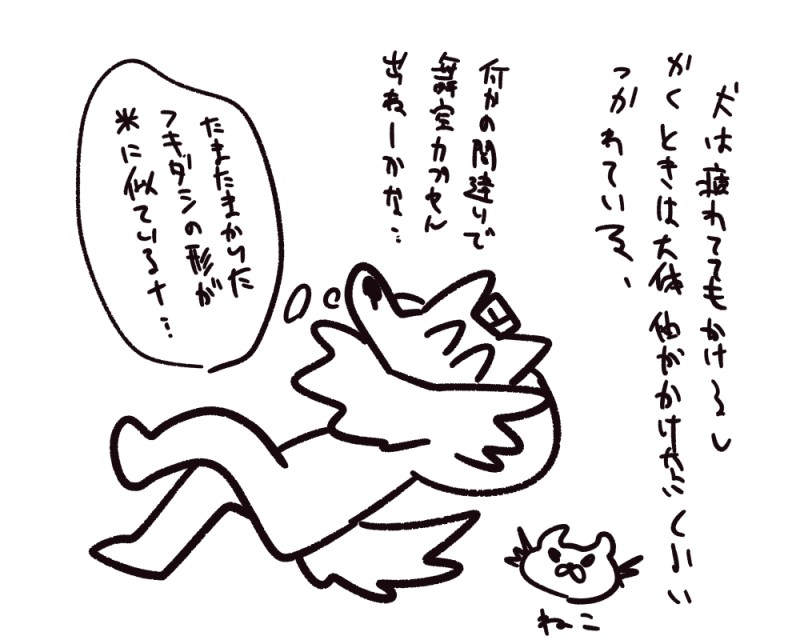 犬は疲れててもかけるし
かくときは大体 他がかけないくらい
つかれている、
何かの間違いで
舞空カプセル
出ねーかな…
たまたまかいた
フキダシの形が
米に似ているナ…
ねこ